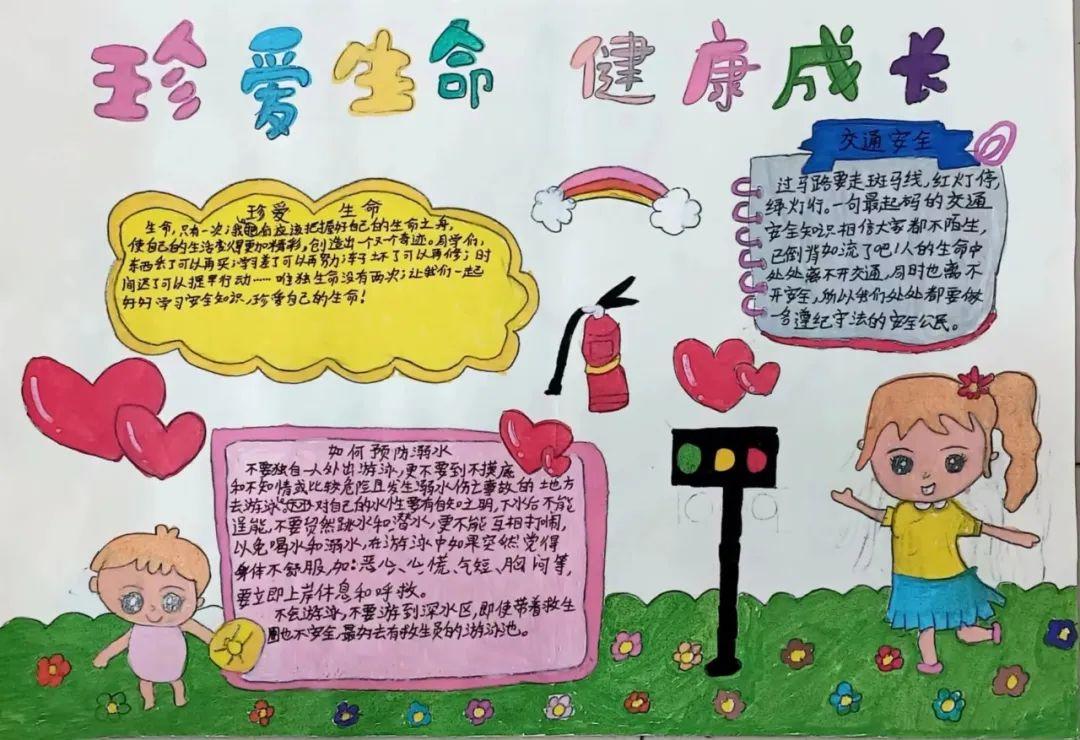 珍爱生命 健康成长
珍爱 生命
生命，只有一次；我们应该把握好自己的生命之舟，
使自己的生活变得更加精彩，创造出一个又一个奇迹。同学们，
东西丢了可以再买；学习差了可以再努力；车子坏了可以再修；时
间迟了可以提早行动……唯独生命没有两次；让我们一起
好好学习安全知识，珍爱自己的生命！
交通安全
过马路要走斑马线，红灯停，
绿灯行。一句最起码的交通
安全知识相信大家都不陌生，
已倒背如流了吧！人的生命中
处处离不开交通，同时也离不
开安全，所以我们处处都要做
一名遵纪守法的安全公民。
如何预防溺水
不要独自一人外出游泳，更不要到不摸底
和不知情或比较危险且发生溺水伤亡事故的地方
去游泳。对自己的水性要有自知之明，下水后不能
逞能，不要贸然跳水和潜水，更不能互相打闹，
以免喝水和溺水，在游泳中如果突然觉得
身体不舒服，如：恶心、心慌、气短、胸闷等，
要立即上岸休息和呼救。
不会游泳，不要游到深水区，即使带着救生
圈也不安全，最好去有救生员的游泳池。